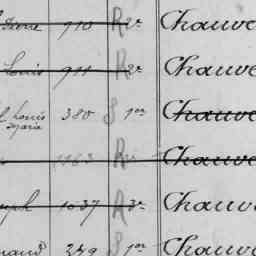 Pierre 910 R 2e Chauve
Louis 911 R 2e Chauve
Louis Marie 380 S 1er Chauve
1163 R Chauve
Joseph 1037 R 3e Chauve
249 S 1er Chauve